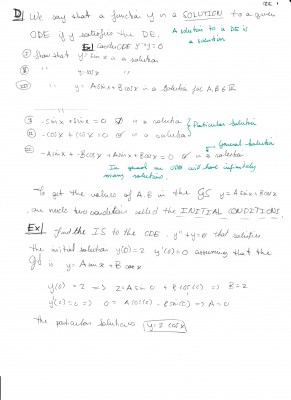 D) We say that a function y is a SOLUTION to a given
ODE if y satisfies the DE.
A solution to a DE is
a solution
Ex) Consider ODE y''+y=0
I) Show that y = sinx is a solution
II) " y=cosx "
III) " y = Asinx + Bcosx is a solution for A,B∈ℝ
I) -sinx + sinx = 0 is a solution
II) -cosx + cosx = 0 is a solution
} Particular Solution
General Solution
III) -Asinx - Bcosx + Asinx + Bcosx = 0 is a solution
In general an ODE will have infinitely
many solutions.
To get the values of A,B in the GS y = Asinx + Bcosx
one needs two conditions called the INITIAL CONDITIONS.
Ex) Find the IS to the ODE. y''+y=0 that satisfies
the initial solution y(0)=2 y'(0)=0 assuming that the
GS is y = A sin x + B cos x
y(0) = 2 => 2 = A sin 0 + B cos(0) => B=2
y'(0)=0 => 0 = A cos(0) - B sin(0) => A=0
The particular solution is y=2 cosx